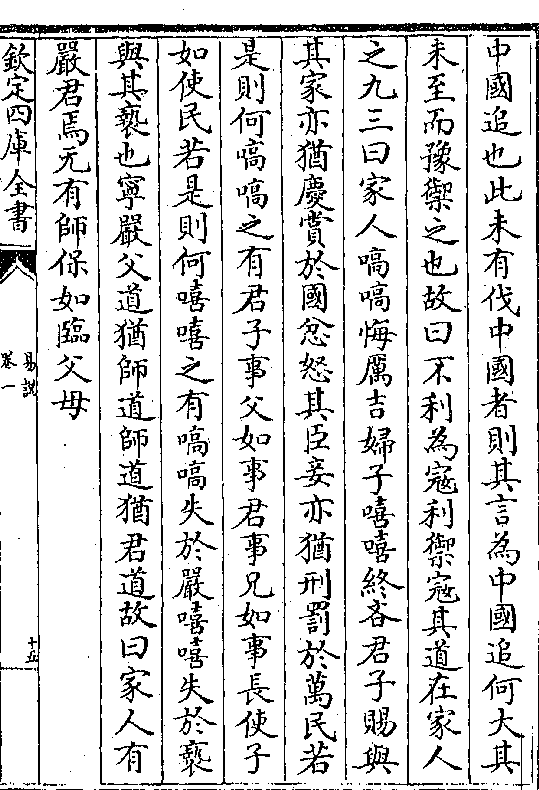 中國追也此未有伐中國者則其言為中國追何大其
未至而豫禦之也故曰不利為寇利禦寇其道在家人
之九三曰家人嗃嗃悔厲吉婦子嘻嘻終吝君子賜與
其家亦猶慶賞於國忿怒其臣妾亦猶刑罰於萬民若
是則何嗃嗃之有君子事父如事君事兄如事長使子
如使民若是則何嘻嘻之有嗃嗃失於嚴嘻嘻失於褻
與其褻也寧嚴父道猶師道師道猶君道故曰家人有
嚴君焉无有師保如臨父母
欽定四庫全書
易說
卷一
十五